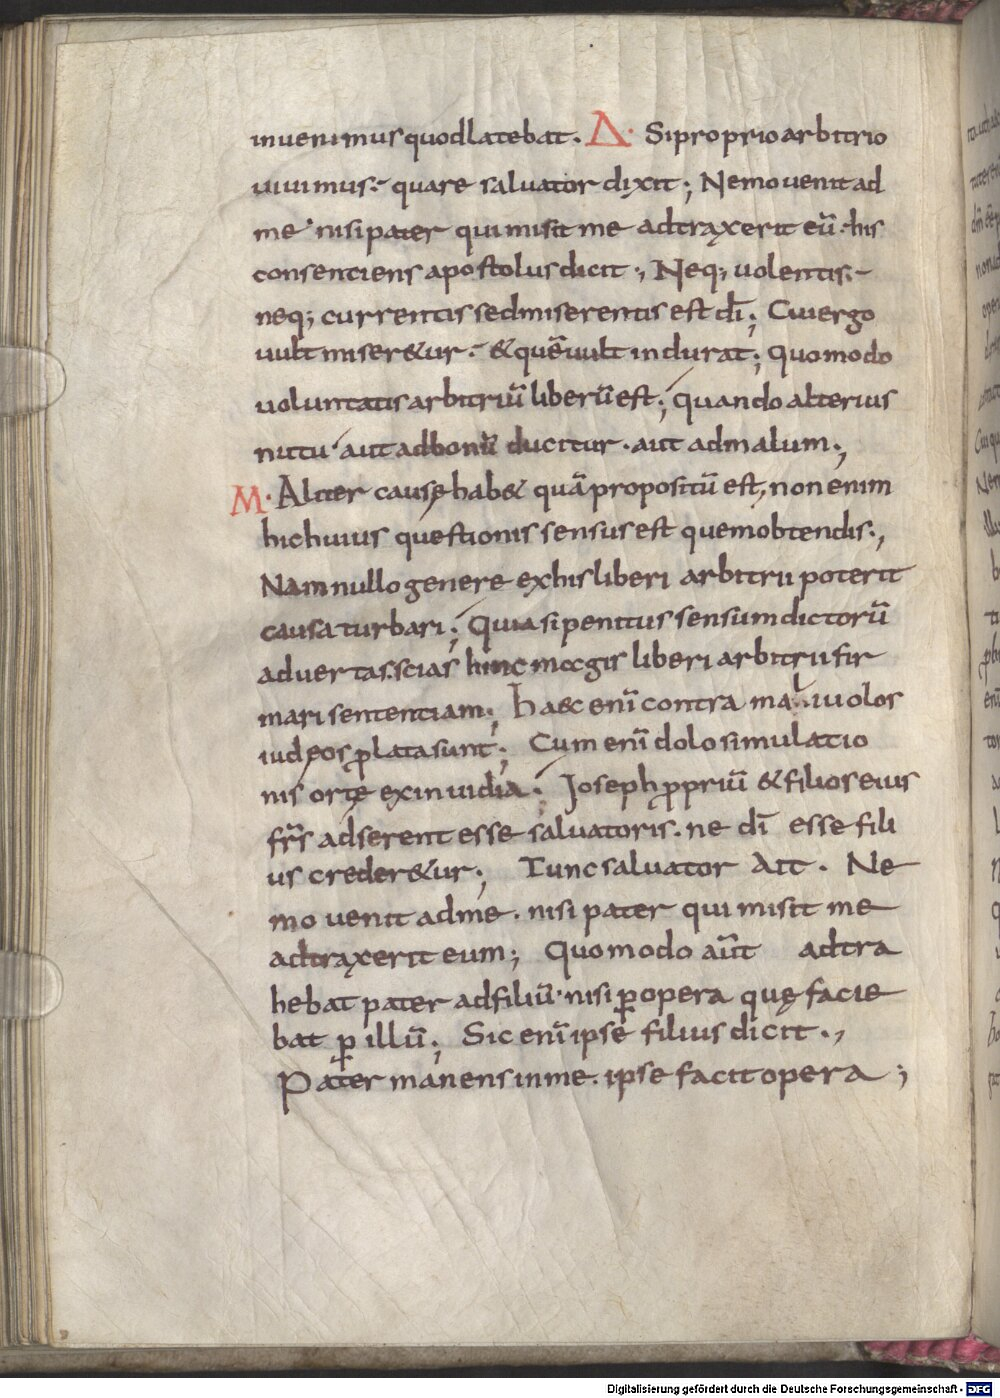 inuenimus quod latebat. Δ· Si proprio arbitrio
uiuimus:- quare saluator dixit; Nemo uenit ad
me' nisi pater qui misit me adtraxerit eū :his
consentiens apostolus dicit ; Neq; uolentis:-
neq; currentis sed miserentis est dī; Cui ergo
uult miser&ur:- & quē uult indurat; Quomodo
uoluntatis arbitriū liberū est; quando alterius
nutu' aut ad bonū ducitur . aut ad malum.,
M· Aliter causę hab& quā propositū est, non enim
hic huius questionis sensus est quem obtendis.,
Nam nullo genere ex his liberi arbitrii poterit
causa turbari; Quia si penitus sensum dictorū
aduertas. scias hinc magis liberi arbitrii fir
mari sententiam; haec enī contra maliuolos
iudęos ꝓlata sunt; Cum enī dolo simulatio
nis ortę ex inuidia. Joseph ꝓpriū & filios eius
frs̄ adserent esse saluatoris. ne dī esse fili
us creder&ur; Tunc saluator Ait. Ne
mo uenit ad me. nisi pater qui misit me
adtraxerit eum; Quomodo aūt adtra
hebat pater ad filiū· nisi ꝑ opera quę facie
bat ꝑ illū; Sic enī ipse filius dicit.,
Pater manens in me. ipse facit opera ;
Digitalisierung gefördert durch die Deutsche Forschungsgemeinschaft - DFG